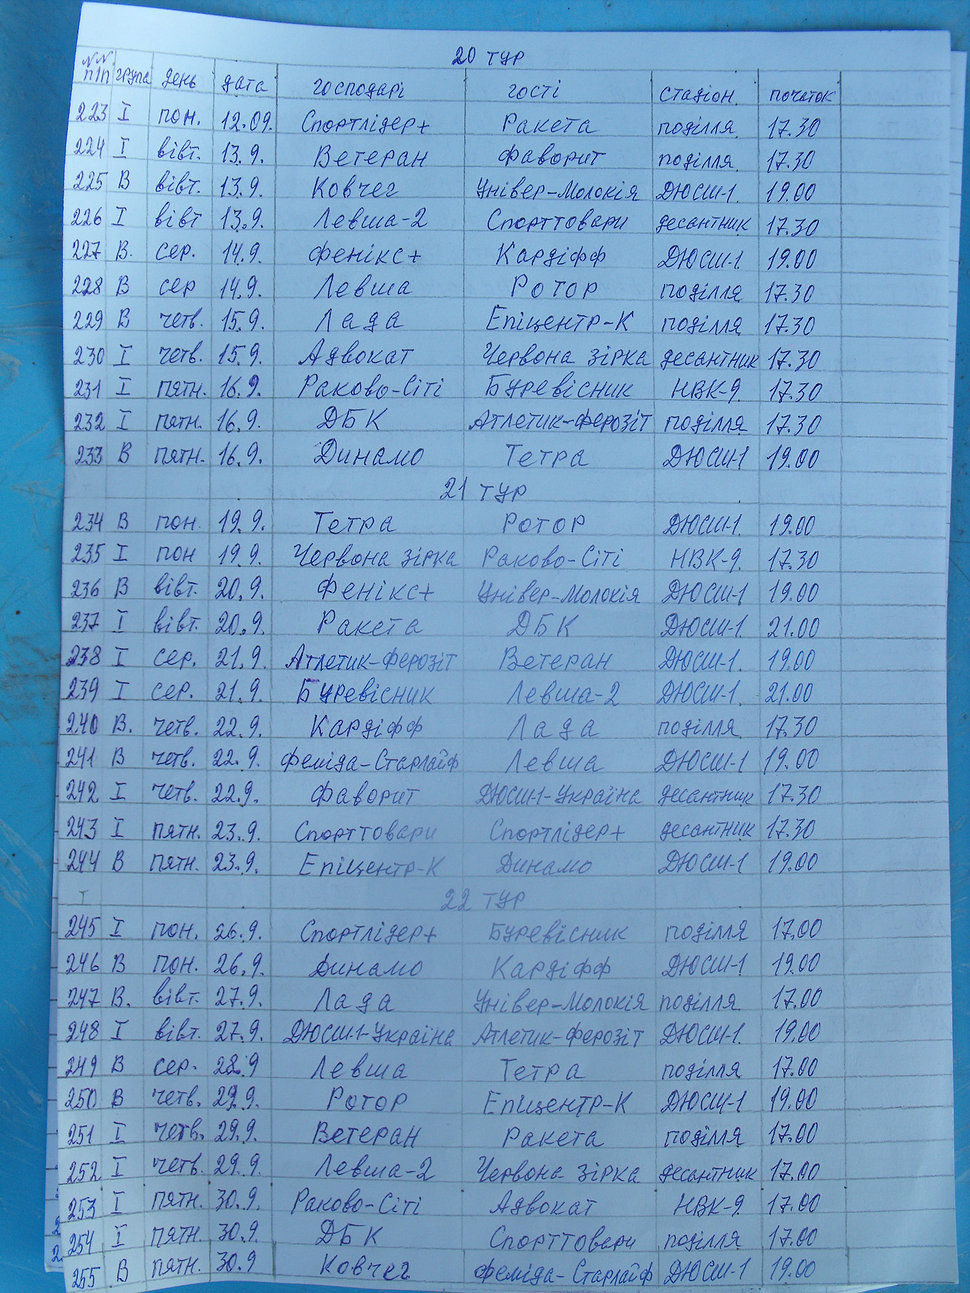 20 тур
№№ п/п група день дата господарі гості стадіон початок
223 I пон. 12.09. Спортлідер+ Ракета поділля 17.30
224 I вівт. 13.9. Ветеран Фаворит поділля 17.30
225 В вівт. 13.9. Ковчег Універ-Молокія ДЮСШ-1 19.00
226 I вівт 13.9. Левша-2 Спорттовари десантник 17.30
227 В. сер. 14.9. Фенікс+ Кардіфф ДЮСШ-1. 19.00
228 В сер 14.9. Левша Ротор поділля 17.30
229 В четв. 15.9. Лада Епіцентр-К поділля 17.30
230 I четв. 15.9. Адвокат Червона зірка десантник 17.30
231 I пятн. 16.9. Раково-Сіті Буревісник НВК-9 17.30
232 I пятн. 16.9. ДБК Атлетик-Ферозіт поділля 17.30
233 В пятн. 16.9. Динамо Тетра ДЮСШ-1 19.00
21 тур
234 В пон. 19.9. Тетра Ротор ДЮСШ-1. 19.00
235 I пон 19.9. Червона зірка Раково-Сіті НВК-9. 17.30
236 В вівт. 20.9. Фенікс+ Універ-Молокія ДЮСШ-1 19.00
237 I вівт. 20.9. Ракета ДБК ДЮСШ-1. 21.00
238 I сер. 21.9. Атлетик-Ферозіт Ветеран ДЮСШ-1. 19.00
239 I сер. 21.9. Буревісник Левша-2 ДЮСШ-1. 21.00
240 В. четв. 22.9. Кардіфф Лада поділля 17.30
241 В четв. 22.9. Феміда-Старлайф Левша ДЮСШ-1 19.00
242 I четв. 22.9. Фаворит ДЮСШ-1-Україна десантник 17.30
243 I пятн. 23.9. Спорттовари Спортлідер+ десантник 17.30
244 В пятн. 23.9. Епіцентр-К Динамо ДЮСШ-1 19.00
I 22 тур
245 I пон. 26.9. Спортлідер+ Буревісник поділля 17.00
246 В пон. 26.9. Динамо Кардіфф ДЮСШ-1 19.00
247 В. вівт. 27.9. Лада Універ-Молокія поділля 17.00
248 I вівт. 27.9. ДЮСШ-1-Україна Атлетик-Ферозіт ДЮСШ-1. 19.00
249 В сер. 28.9 Левша Тетра поділля 17.00
250 В четв. 29.9. Ротор Епіцентр-К ДЮСШ-1 19.00
251 I четв. 29.9. Ветеран Ракета поділля 17.00
252 I четв. 29.9. Левша-2 Червона зірка десантник 17.00
253 I пятн. 30.9. Раково-Сіті Адвокат НВК-9 17.00
254 I пятн. 30.9. ДБК Спорттовари поділля 17.00
255 В пятн. 30.9 Ковчег Феміда-Старлайф ДЮСШ-1 19.00